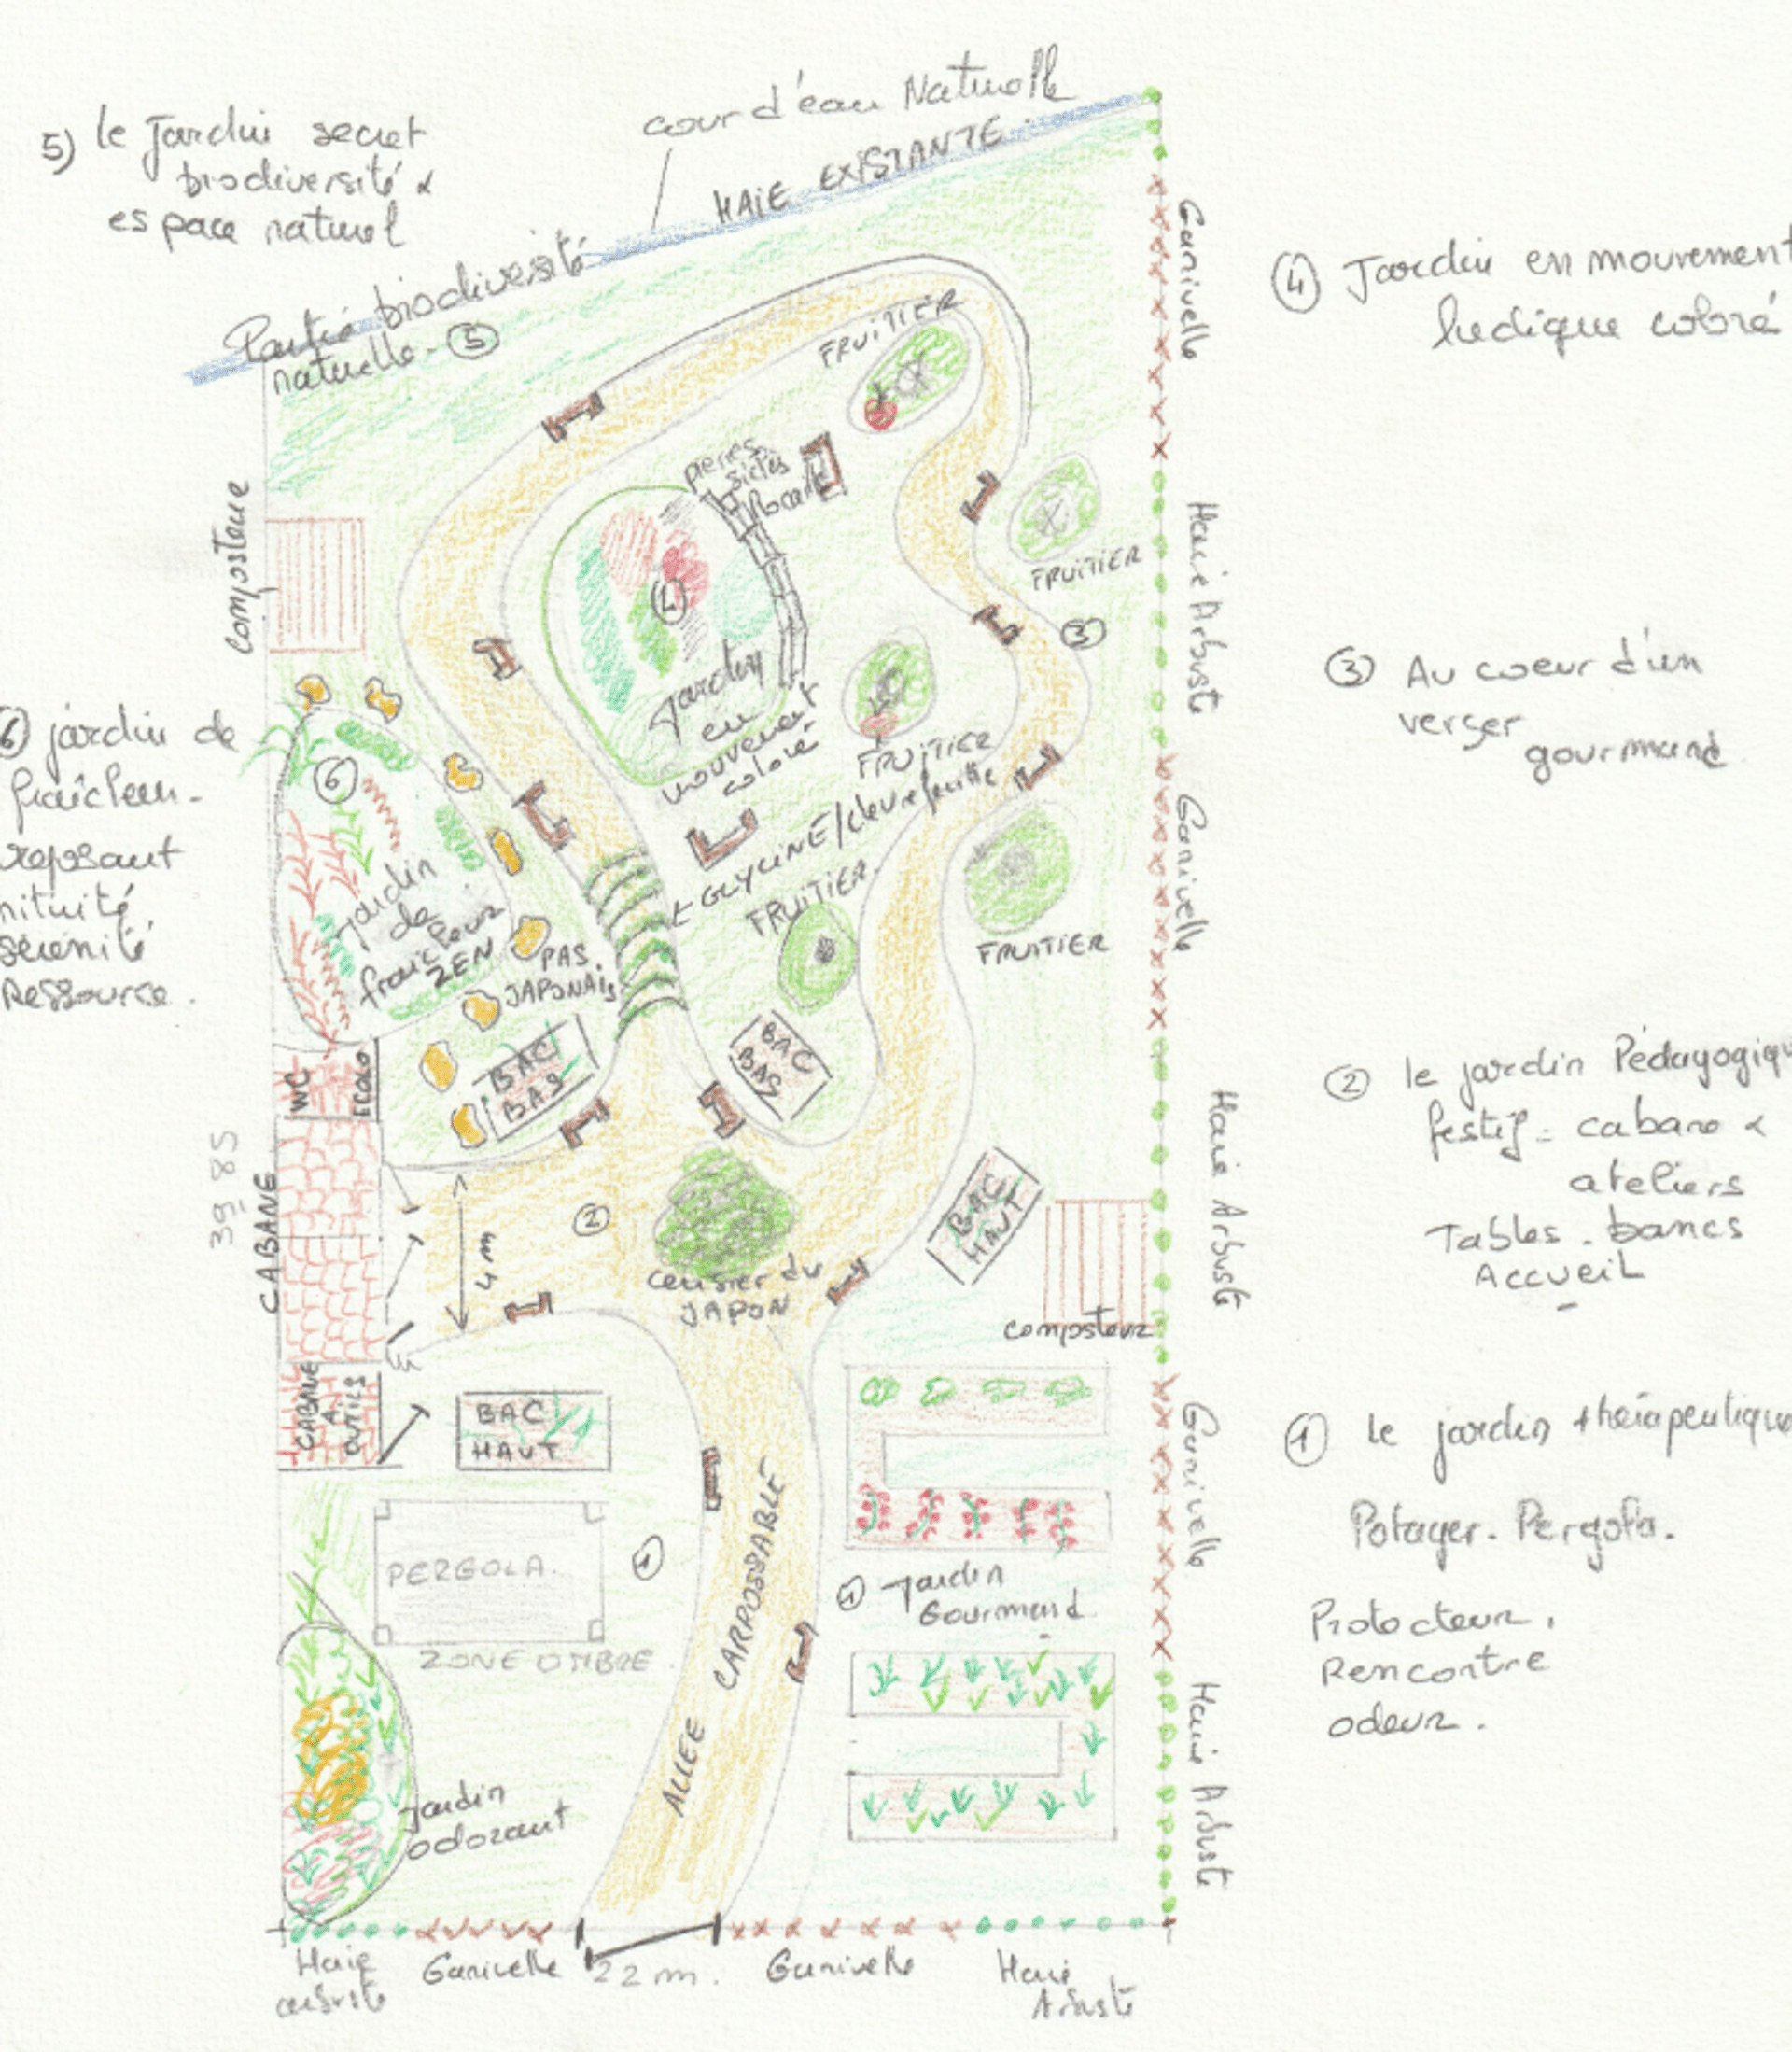 cour d'eau Naturelle
HAIE EXISTANTE.
5) le Jardin secret
biodiversité &
espace naturel
Partie biodiversité
naturelle - ⑤
Ganivelle
④ Jardin en mouvement
ludique coloré
FRUITIER
pierres
sèches
Rocaille
Composteur
Haie Arbuste
FRUITIER
④
Jardin
en
mouvement
coloré
③
③ Au coeur d'un
verger
gourmand
⑥ jardin de
fraîcheur -
reposant
sérénité
Ressource.
⑥
jardin
de
fraicheur
ZEN
FRUITIER
GLYCINE/chevrefeuille
FRUITIER.
FRUITIER
Ganivelle
PAS
JAPONAIS
BAC
BAS
BAC
BAS
WC
ECOLO
② le jardin Pédagogiqu
festif = cabane &
ateliers
Tables - bancs
ACCUEIL
39 85
CABANE
4m
②
cerisier du
JAPON
BAC
HAUT
Composteur
Haie Arbuste
CABANE
A
OUTILS
BAC
HAUT
① le jardin thérapeutique
Potager - Pergola.
Protecteur,
Rencontre
odeur.
Ganivelle
PERGOLA
①
ZONE OMBRE.
① Jardin
Gourmand
ALLEE CARROSSABLE
jardin
odorant
Haie Arbuste
Haie
arbuste
Ganivelle
22 m.
Ganivelle
Haie
Arbuste